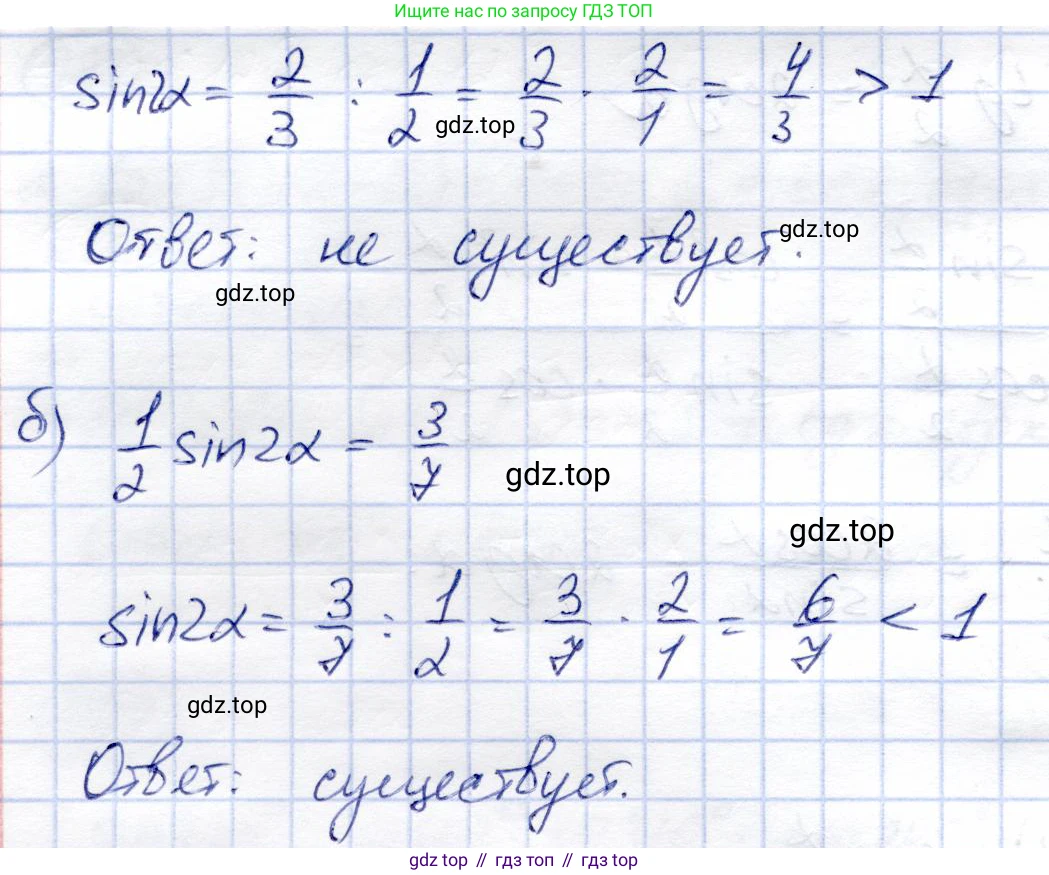 Ищите нас по запросу ГДЗ ТОП
sin2α = 2/3 : 1/2 = 2/3 · 2/1 = 4/3 > 1
gdz.top
Ответ: не существует.
gdz.top
gdz.top
б) 1/2 sin2α = 3/7
gdz.top
gdz.top
sin2α = 3/7 : 1/2 = 3/7 · 2/1 = 6/7 < 1
gdz.top
Ответ: существует.
gdz top // гдз топ // gdz top